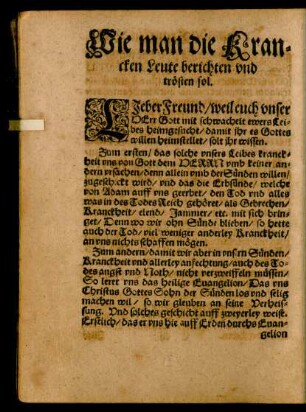 Wie man die Kran-
cken Leute berichten vnd
trösten sol.
LJeber Freund / weil euch vnser
HErr Gott mit schwacheit ewers Lei-
bes heimgesucht / damit jhr es Gottes
willen heimstellet / solt jhr wissen.
Zum ersten / das solche vnsers Leibes kranck-
heit vns von Gott dem HERRN vmb keiner an-
dern vrsachen / denn allein vmb der Sünden willen /
zugeschickt wird / vnd das die Erbsünde / welche
von Adam auff vns geerbet / den Tod vnd alles
was in des Todes Reich gehöret / als Gebrechen /
Kranckheit / elend / Jammer / etc. mit sich brin-
get / Denn wo wir ohn Sünde blieben / so hette
auch der Tod / viel weniger anderley Kranckheit /
an vns nichts schaffen mögen.
Zum andern / damit wir aber in vnsern Sünden /
Kranckheit vnd allerley anfechtung / auch des To-
des angst vnd Noth / nicht verzweiffeln müssen /
So leret vns das heilige Euangelion / Das vns
Christus Gottes Sohn der Sünden los vnd selig
machen wil / so wir gleuben an seine Verheis-
sung. Vnd solches geschicht auff zweyerley weise.
Erstlich / das er vns hie auff Erden durchs Euan-
gelion